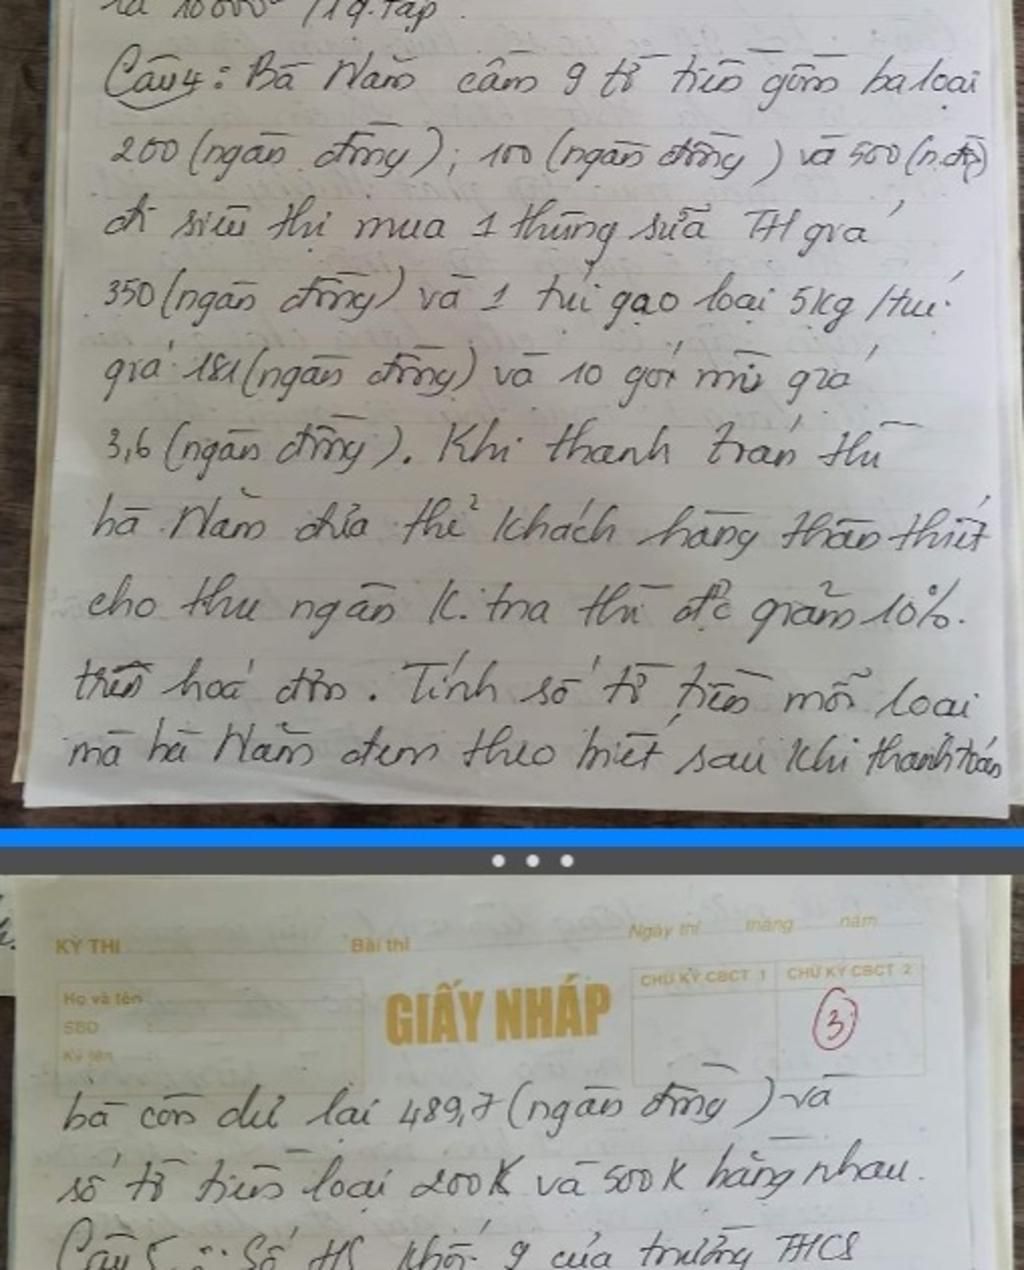 là 10000đ /1q.tập.
Câu 4: Bà Năm cầm 9 tờ tiền gồm ba loại
200 (ngàn đồng); 100 (ngàn đồng) và 500 (n.đồg)
đi siêu thị mua 1 thùng sữa TH giá
350 (ngàn đồng) và 1 túi gạo loại 5kg/túi
giá 181 (ngàn đồng) và 10 gói mì giá
3,6 (ngàn đồng). Khi thanh toán thì
bà Năm đưa thẻ khách hàng thân thiết
cho thu ngân k.tra thì đc giảm 10%.
trên hoá đơn. Tính số tờ tiền mỗi loại
mà bà Năm đem theo biết sau khi thanh toán
KỲ THI
Bài thi
Ngày thi tháng năm
Họ và tên :
SBD :
Ký tên :
GIẤY NHÁP
CHỮ KÝ CBCT 1 CHỮ KÝ CBCT 2
3
bà còn dư lại 489,7 (ngàn đồng) và
số tờ tiền loại 200K và 500K bằng nhau.
Câu 5 : Số HS khối 9 của trường THCS